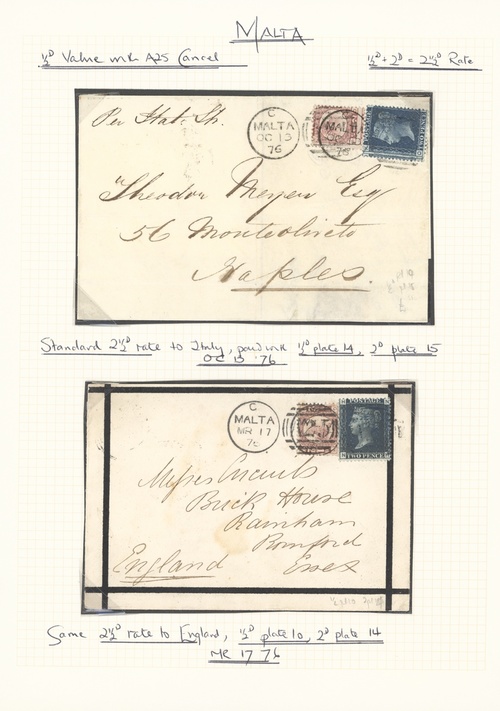 MALTA
½D Value with A25 Cancel
½D + 2D = 2½D Rate
Per Ital. Sh.
C
MALTA
OC 13
76
TWO PENCE
"Theodor Meyer Esq
56 Monteoliveto
Naples.
Standard 2½D rate to Italy, paid with ½D plate 14, 2D plate 15
OC 13 '76
C
MALTA
MR 17
76
POSTAGE
TWO PENCE
Brick House
Rainham
Romford
England Essex
Same 2½D rate to England, ½D plate 10, 2D plate 14
MR 17 76